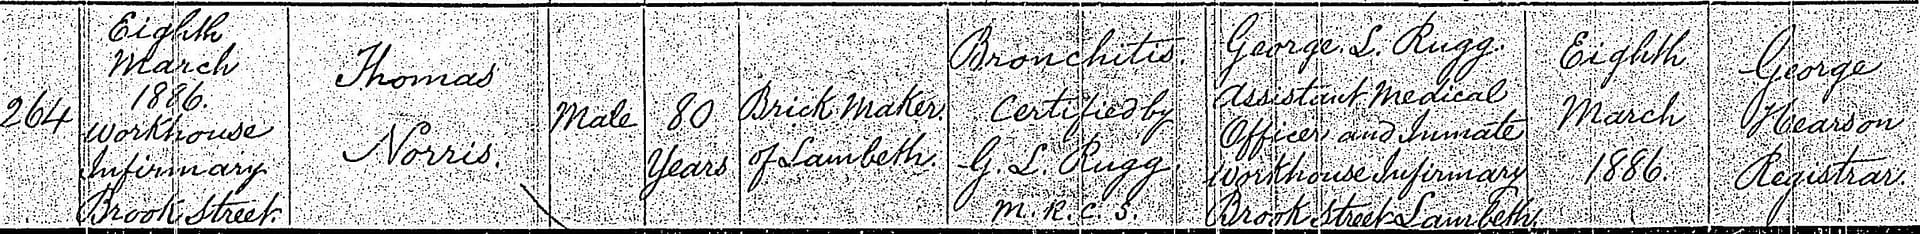 264
Eighth
March
1886.
Workhouse
Infirmary
Brook Street
Thomas
Norris.
Male
80
Years
Brick Maker.
of Lambeth.
Bronchitis.
Certified by
G. L. Rugg.
M.R.C.S.
George. L. Rugg.
Assistant Medical
Officer, and Inmate
Workhouse Infirmary
Brook Street Lambeth.
Eighth
March
1886.
George
Hearson
Registrar.